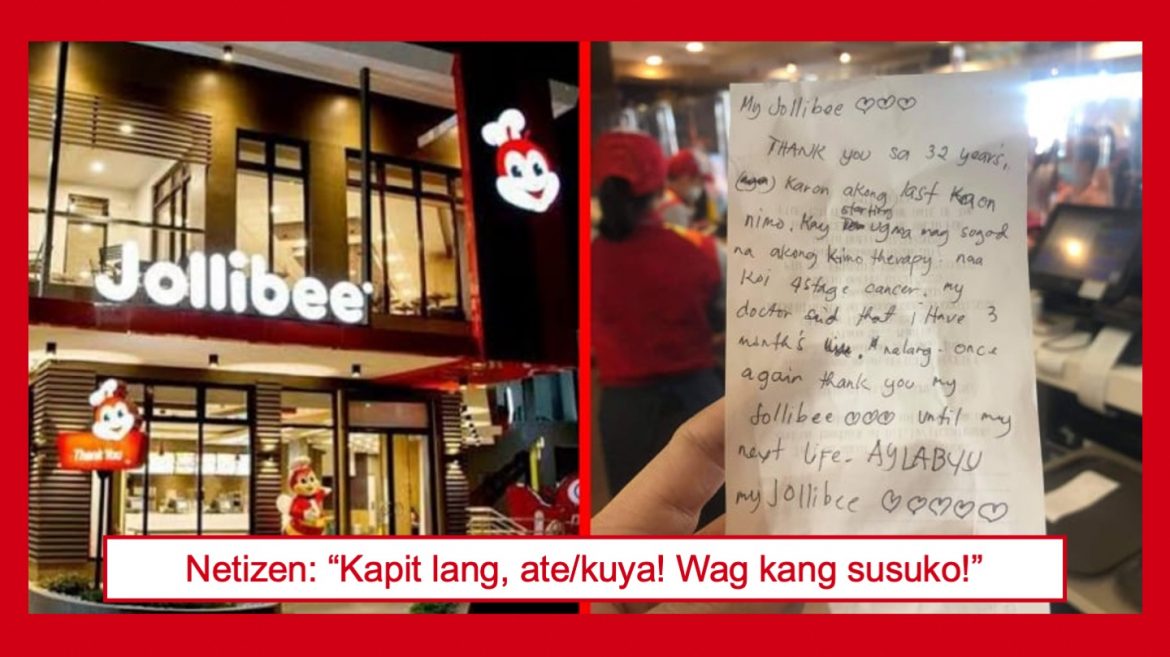 Jollibee
Thank You
My Jollibee ♡♡♡
THANK you sa 32 years,
Karon akong last kaon
starting
nimo. Kay ugma mag sogod
na akong kimo therapy. naa
koi 4stage cancer. my
doctor said that i Have 3
month's nalang. once
again thank you my
Jollibee ♡♡♡ until my
next life. AYLABYU
my Jollibee ♡♡♡♡♡
Netizen: “Kapit lang, ate/kuya! Wag kang susuko!”